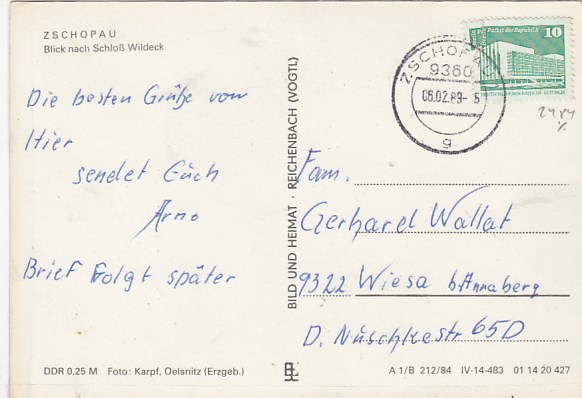 ZSCHOPAU
Blick nach Schloß Wildeck
Die besten Grüße von
Hier
sendet Euch
Arno
Brief folgt später
DDR 0,25 M Foto: Karpf, Oelsnitz (Erzgeb.)
BILD UND HEIMAT · REICHENBACH (VOGTL)
Palast der Republik
10
ZSCHOPAU
9360
06.02.89- 5
g
Fam.
Gerhard Wallat
9322 Wiesa b. Annaberg
D. Nüschkestr 65D
A 1/B 212/84 IV-14-483 01 14 20 427